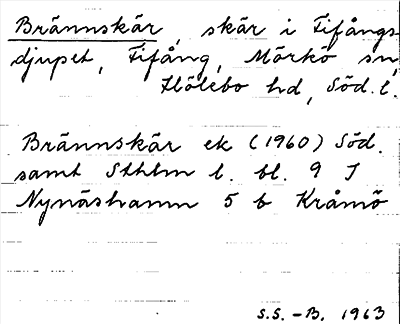 Brännskär, skär i Fifångs-
djupet, Fifång, Mörkö sn,
Hölebo hd, Söd. l.
Brännskär ek (1960) Söd.
samt Sthlm l. bl. 9 I
Nynäshamn 5 b Kråmö
S.S. -B. 1963